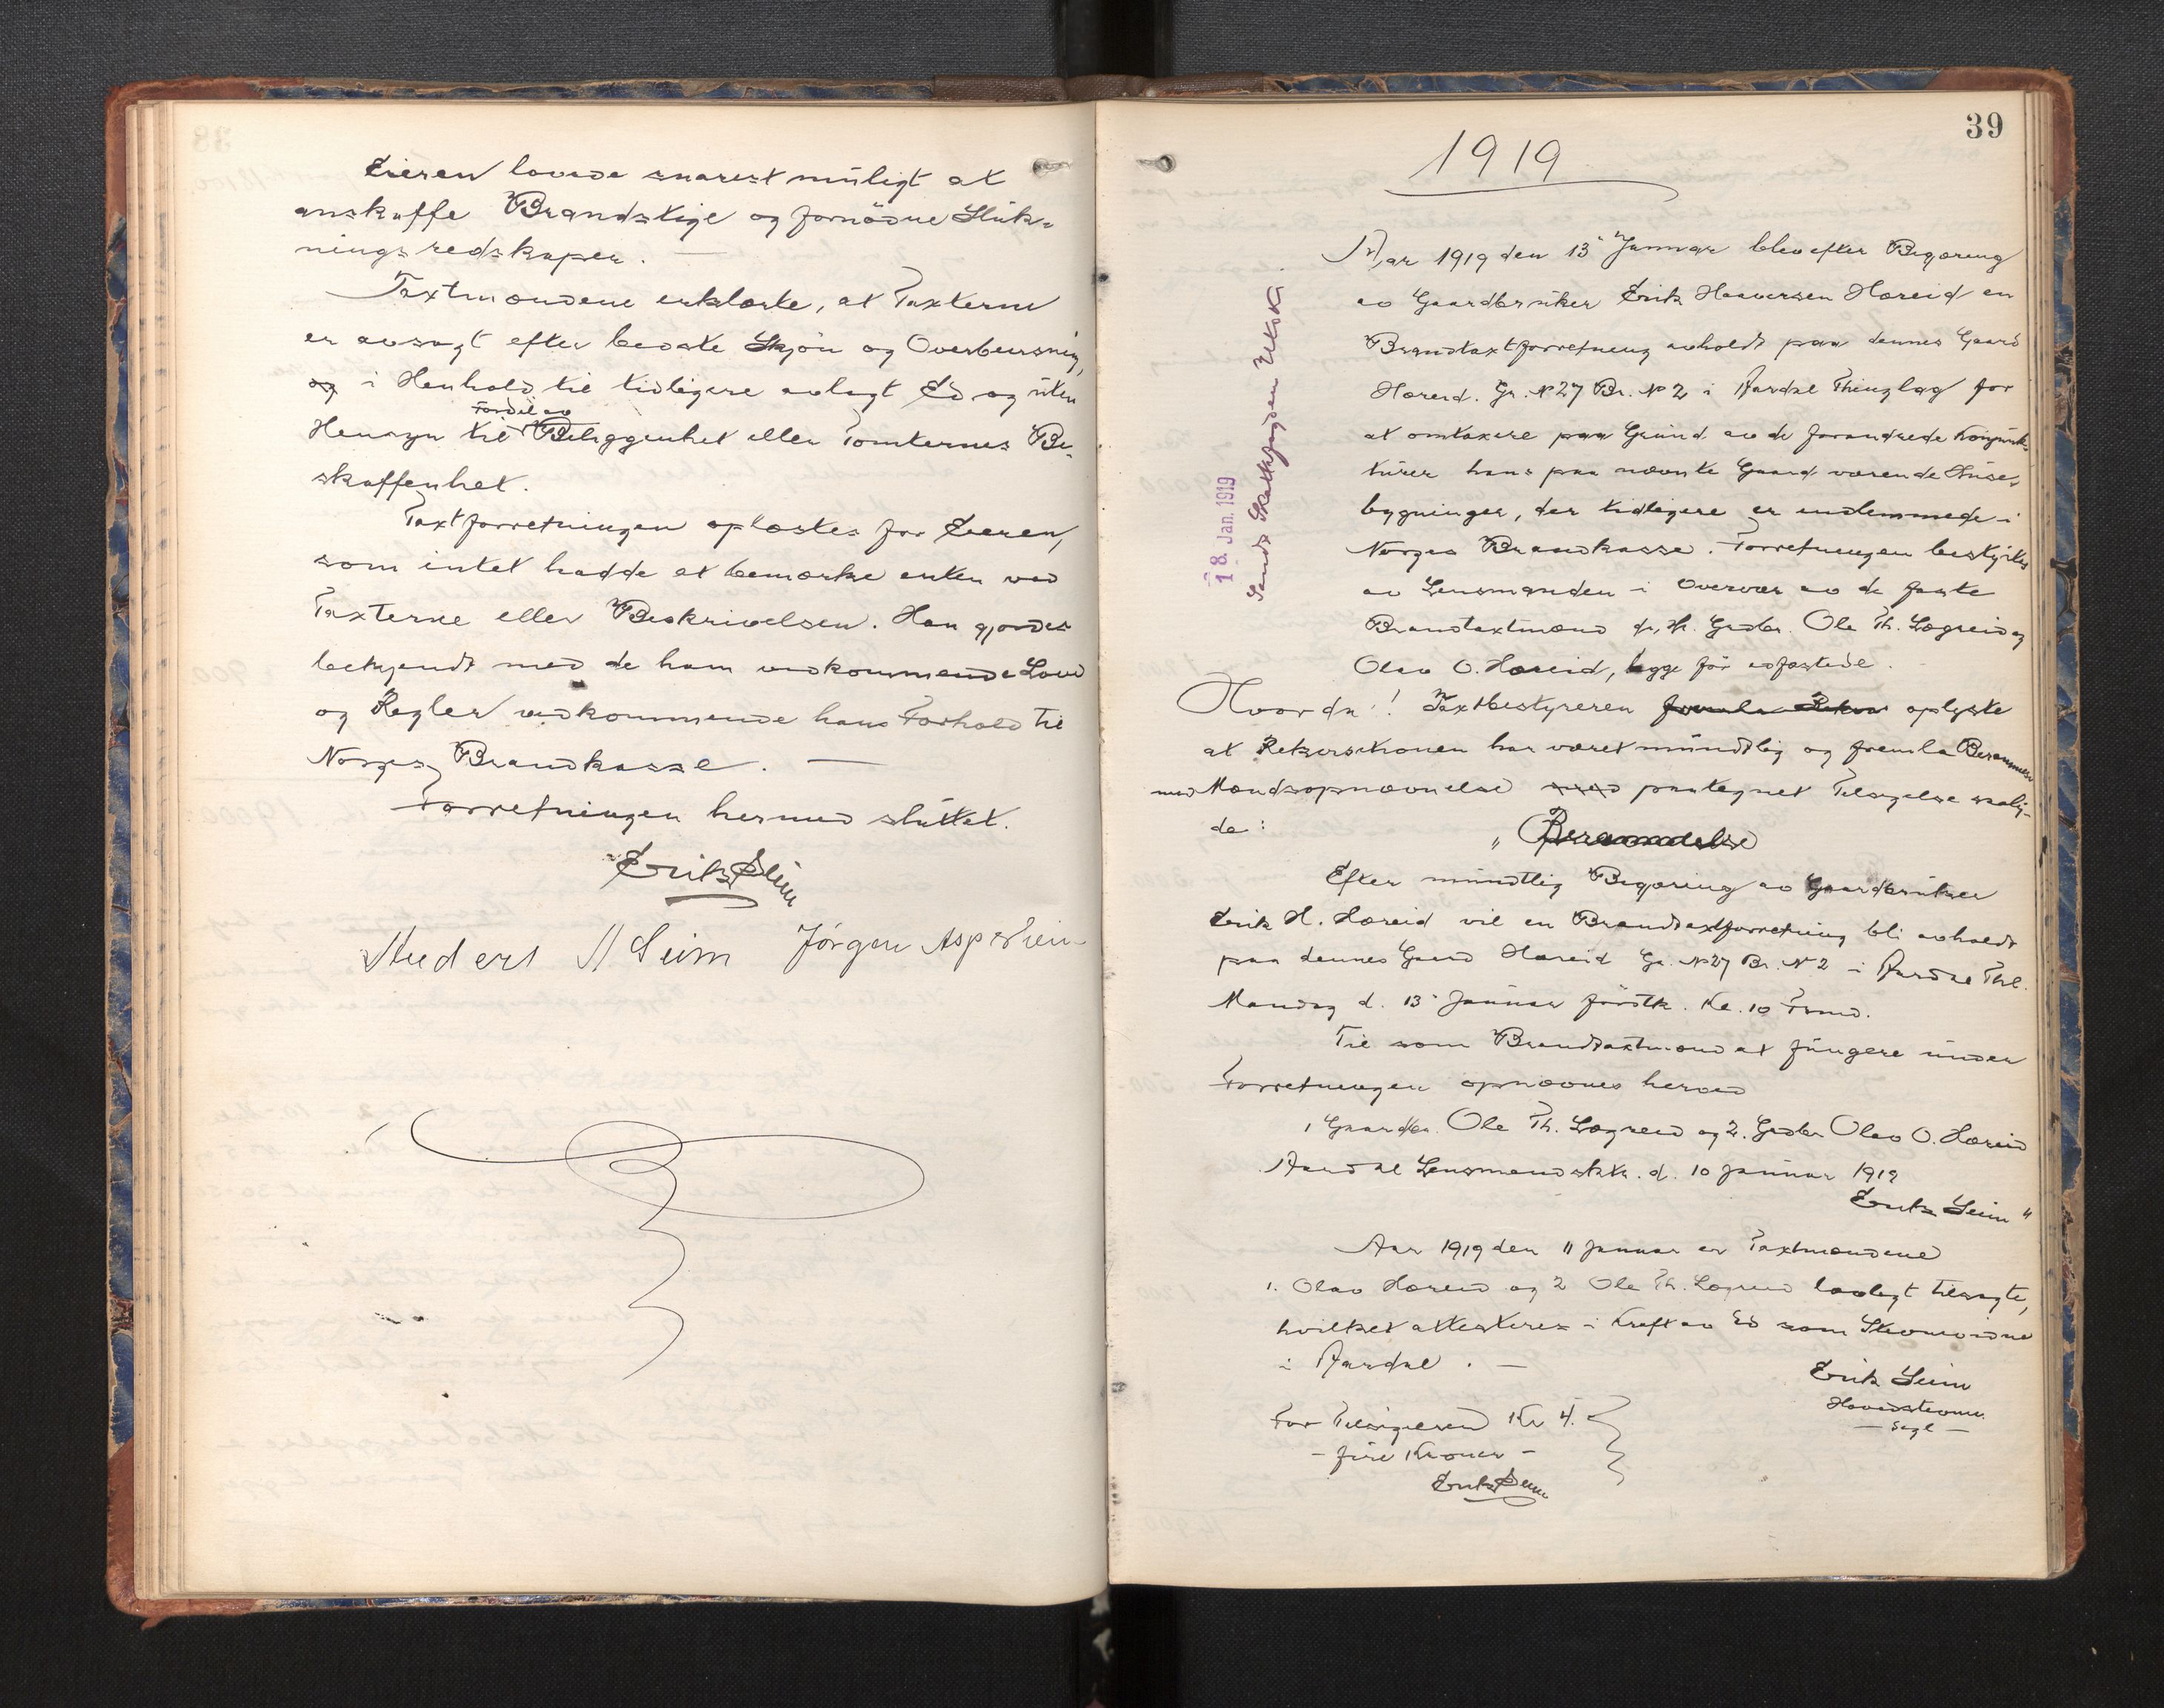 Eieren lovede snarest muligt at
anskaffe Brandstige og fornödne Sluk-
ningsredskaper. —
Taxtmændene erklærte, at Taxterne
er avsagt efter bedste Skjøn og Overbevisning,
og i Henhold til tidligere avlagt Ed og uten
Fordel av
Hensyn til Beliggenhet eller Tomternes Be-
skaffenhet.
Taxtforretningen oplæstes for Eieren,
som intet hadde at bemærke enten ved
Taxterne eller Beskrivelsen. Han gjordes
bekjendt med de ham vedkommende Love
og Regler vedkommende hans Forhold til
Norges Brandkasse. —
Forretningen hermed sluttet.
Erik Seim
Anders A Seim Jörgen Asperheim
39
1919
Aar 1919 den 13 Januar blev efter Begjæring
av Gaardbruker Erik Haaversen Hæreid en
Brandtaxtforretning avholdt paa dennes Gaard
Hæreid. Gr. № 27 Br. № 2 i Aardal Thinglag for
at omtaxere paa Grund av de forandrede Konjunk-
turer hans paa nævnte Gaard værende Huse-
bygninger, der tidligere er indlemmede i
Norges Brandkasse. Forretningen bestyrtes
av Lensmanden i Overvær av de faste
Brandtaxtmænd Grdbr. Ole Th. Lægreid og
Olav O. Hæreid, begge før edfæstede.
Hvorda! Taxtbestyreren fremla oplyste
at Rekvisitionen har været mundtlig og fremla Berammelse
med Mændsopnævnelse med paategnet Tilsigelse saaly-
de:
" Berammelse
Efter mundtlig Begjæring av Gaardbruker
Erik H. Hæreid vil en Brandtaxtforretning bli avholdt
paa dennes Gaard Hæreid Gr. № 27 Br. № 2 i Aardal Thl.
Mandag d. 13 Januar förstk. Kl. 10 Formd.
Til som Brandtaxtmænd at fungere under
Forretningen opnævnes herved
1 Gaardbr. Ole Th. Lægreid og 2. Grdbr Olav O. Hæreid
Aardal Lensmandsktr. d. 10 Januar 1919
Erik Seim "
Aar 1919 den 11 Januar er Taxtmændene
1. Olav Hæreid og 2 Ole Th. Lægreid lovlegt tilsagte,
hvilket attesteres i Kraft av Ed som Stevnevidne
i Aardal. —
Erik Seim
Hovedstevnev.
— Segl —
For Tilsigelsen Kr 4.
– fire Kroner –
Erik Seim
18. Jan. 1919
Sendt Skattefogden Utskr.